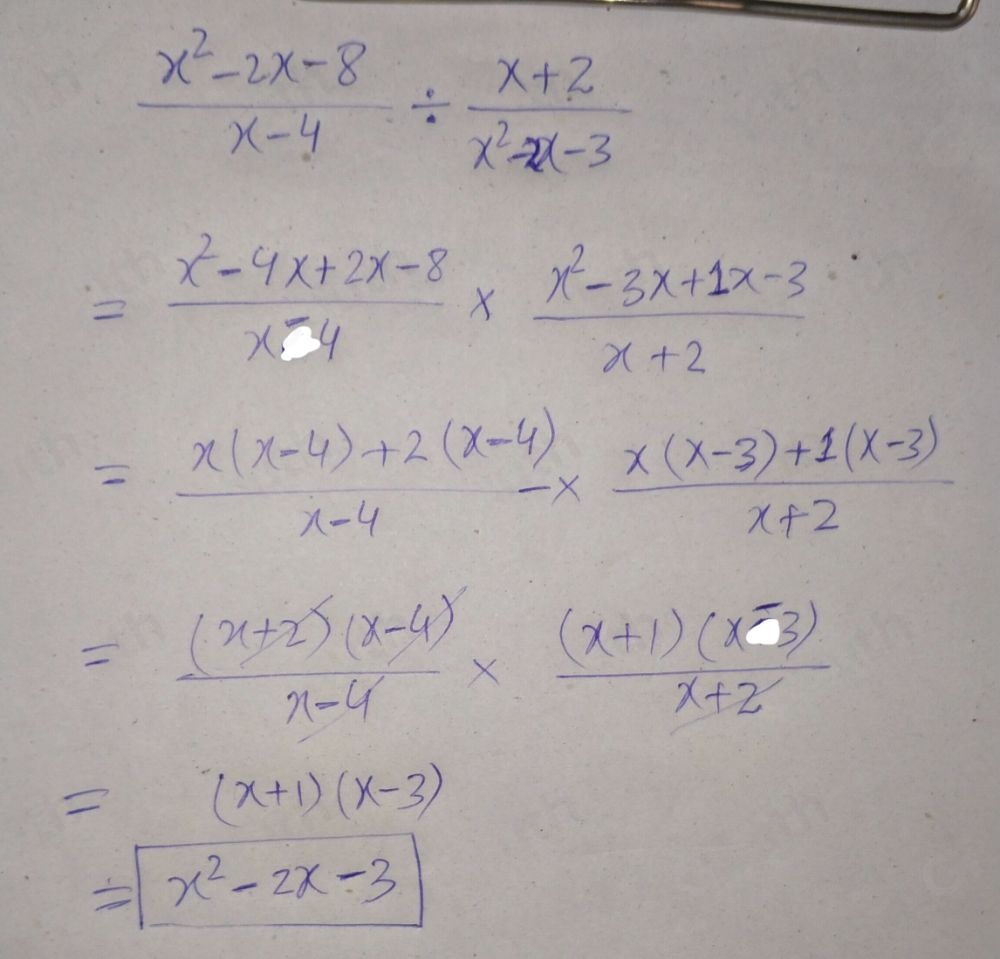 x² - 2x - 8 / x - 4 ÷ x + 2 / x² - 2x - 3
= x² - 4x + 2x - 8 / x - 4 × x² - 3x + 1x - 3 / x + 2
= x(x-4) + 2(x-4) / x - 4 - × x(x-3) + 1(x-3) / x + 2
= (x+2)(x-4) / x - 4 × (x+1)(x-3) / x + 2
= (x+1)(x-3)
= x² - 2x - 3